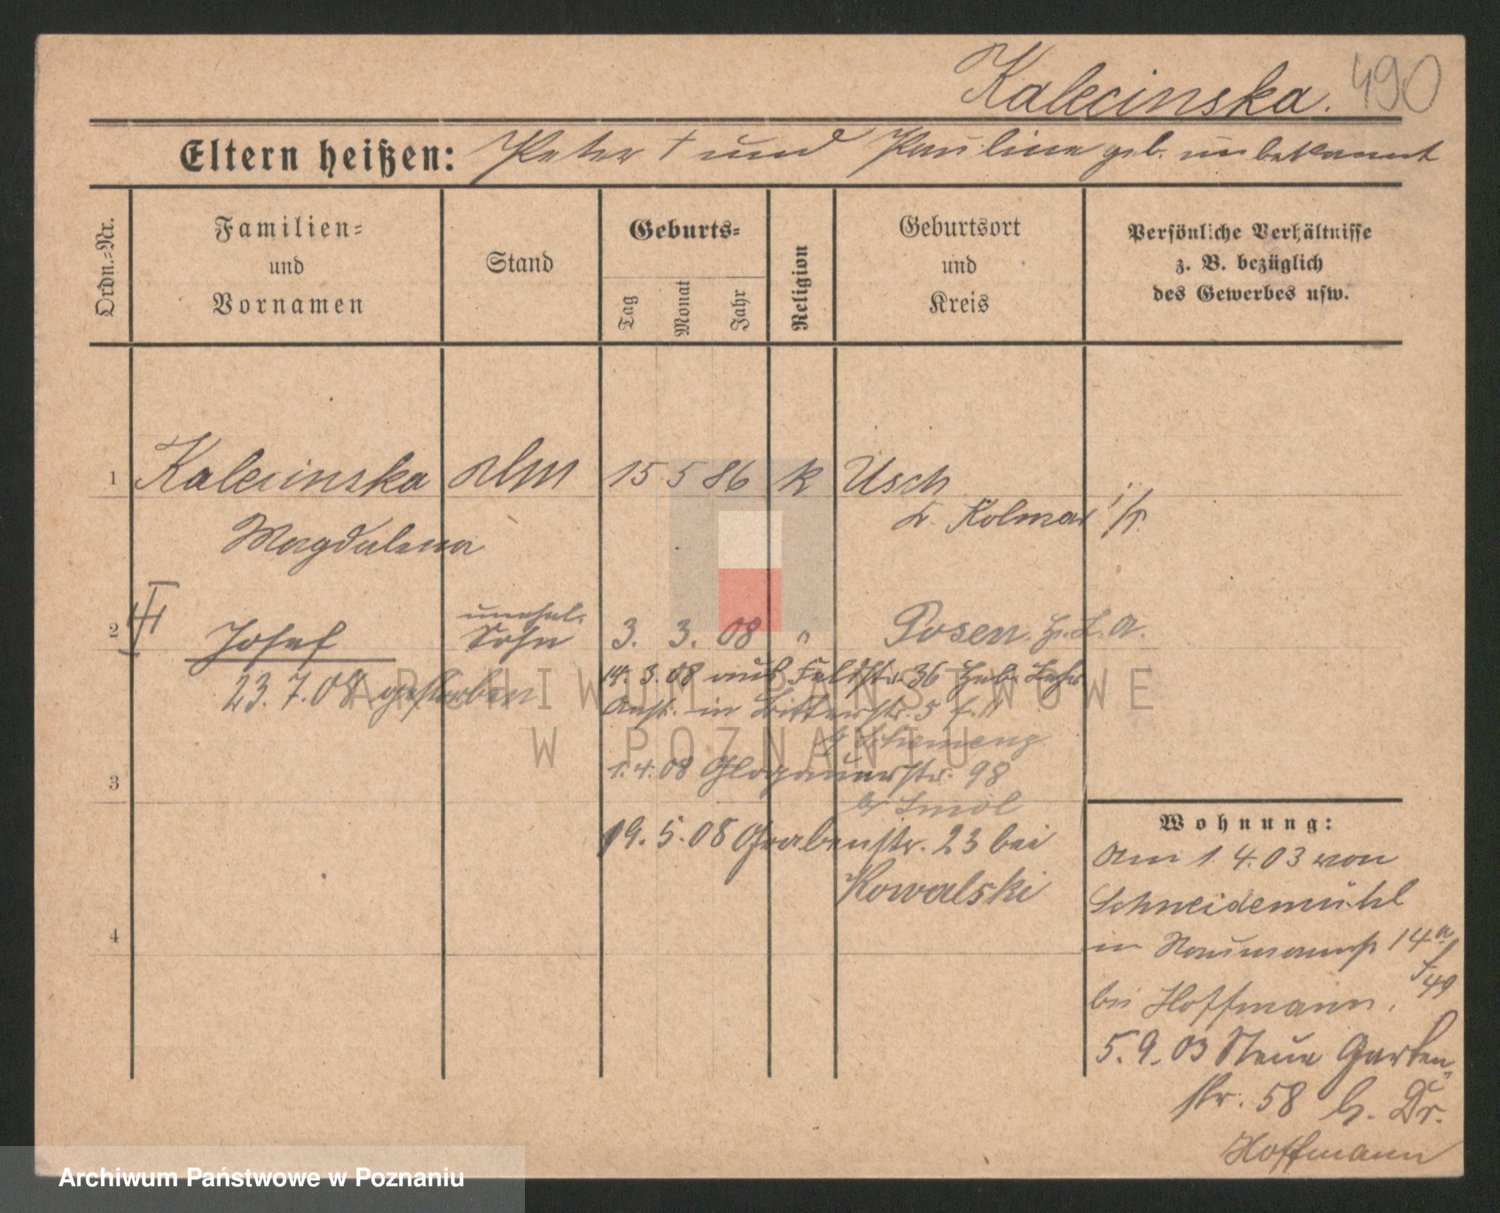 Kalecinska. 490
Eltern heißen: Peter † und Pauline geb. unbekannt
Ordn.-Nr.
Familien-
und
Vornamen
Stand
Geburts-
Tag
Monat
Jahr
Religion
Geburtsort
und
Kreis
Persönliche Verhältnisse
z. B. bezüglich
des Gewerbes usw.
1 Kalecinska 15 5 86 k Usch
Kr. Kolmar i/P
Magdalena
2 Josef unehel. Sohn 3. 3. 08 " Posen
23.7.08 gestorben
14. 3. 08 aus Feldstr. 36 Heb. Lehr
Anst. in Ritterstr. 5
1. 4. 08 Glogauerstr. 98
b/ Smol
19. 5. 08 Grabenstr. 23 bei
Kowalski
3
4
Wohnung:
Am 1. 4. 03 von
Schneidemühl
in Naumannstr 14a
bei Hoffmann.
5. 9. 03 Neue Garten-
str. 58 b. Dr.
Hoffmann
ARCHIWUM PAŃSTWOWE
W POZNANIU
Archiwum Państwowe w Poznaniu